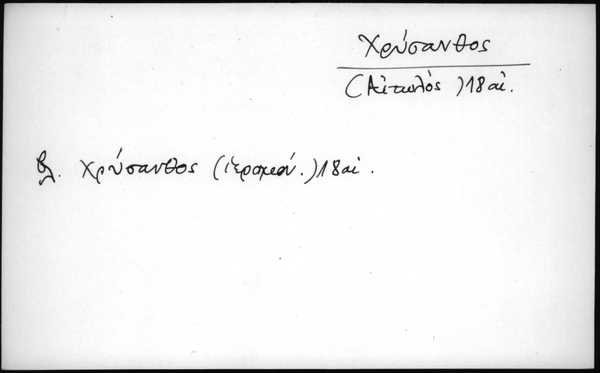 Χρύσανθος
(Αἰτωλός) 18 αἰ.
βλ. Χρύσανθος (ἱερομον.) 18 αἰ.